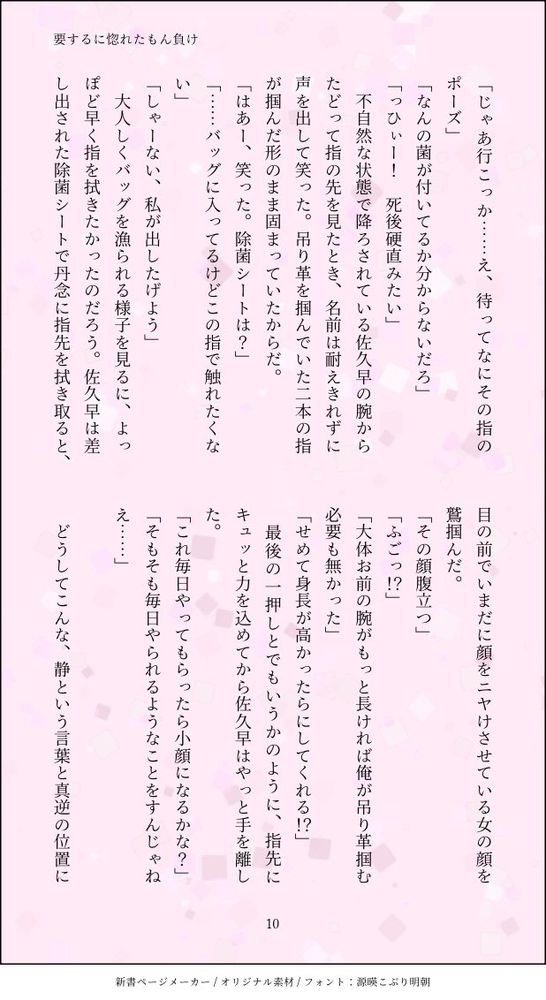 要するに惚れたもん負け
「じゃあ行こっか……え、待ってなにその指の
ポーズ」
「なんの菌が付いてるか分からないだろ」
「っひぃー！　死後硬直みたい」
　不自然な状態で降ろされている佐久早の腕から
たどって指の先を見たとき、名前は耐えきれずに
声を出して笑った。吊り革を掴んでいた二本の指
が掴んだ形のまま固まっていたからだ。
「はあー、笑った。除菌シートは？」
「……バッグに入ってるけどこの指で触れたくな
い」
「しゃーない、私が出したげよう」
　大人しくバッグを漁られる様子を見るに、よっ
ぽど早く指を拭きたかったのだろう。佐久早は差
し出された除菌シートで丹念に指先を拭き取ると、
目の前でいまだに顔をニヤけさせている女の顔を
鷲掴んだ。
「その顔腹立つ」
「ふごっ!?」
「大体お前の腕がもっと長ければ俺が吊り革掴む
必要も無かった」
「せめて身長が高かったらにしてくれる!?」
　最後の一押しとでもいうかのように、指先に
キュッと力を込めてから佐久早はやっと手を離し
た。
「これ毎日やってもらったら小顔になるかな？」
「そもそも毎日やられるようなことをすんじゃね
え……」
　どうしてこんな、静という言葉と真逆の位置に
10
新書ページメーカー / オリジナル素材 / フォント：源暎こぶり明朝